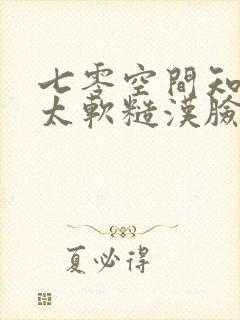 七零空間知
太軟糙漢臉
夏必得